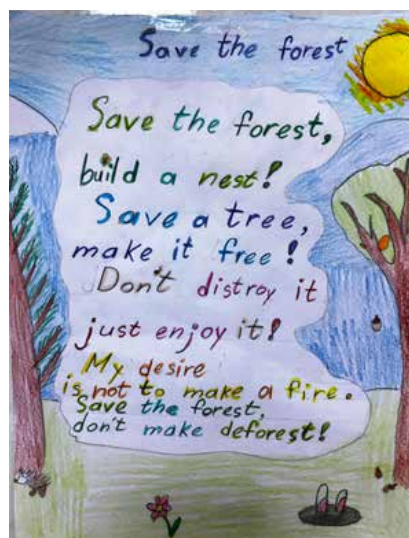 Save the forest
Save the forest,
build a nest!
Save a tree,
make it free!
Don't distroy it
just enjoy it!
My desire
is not to make a fire.
Save the forest,
don't make deforest!